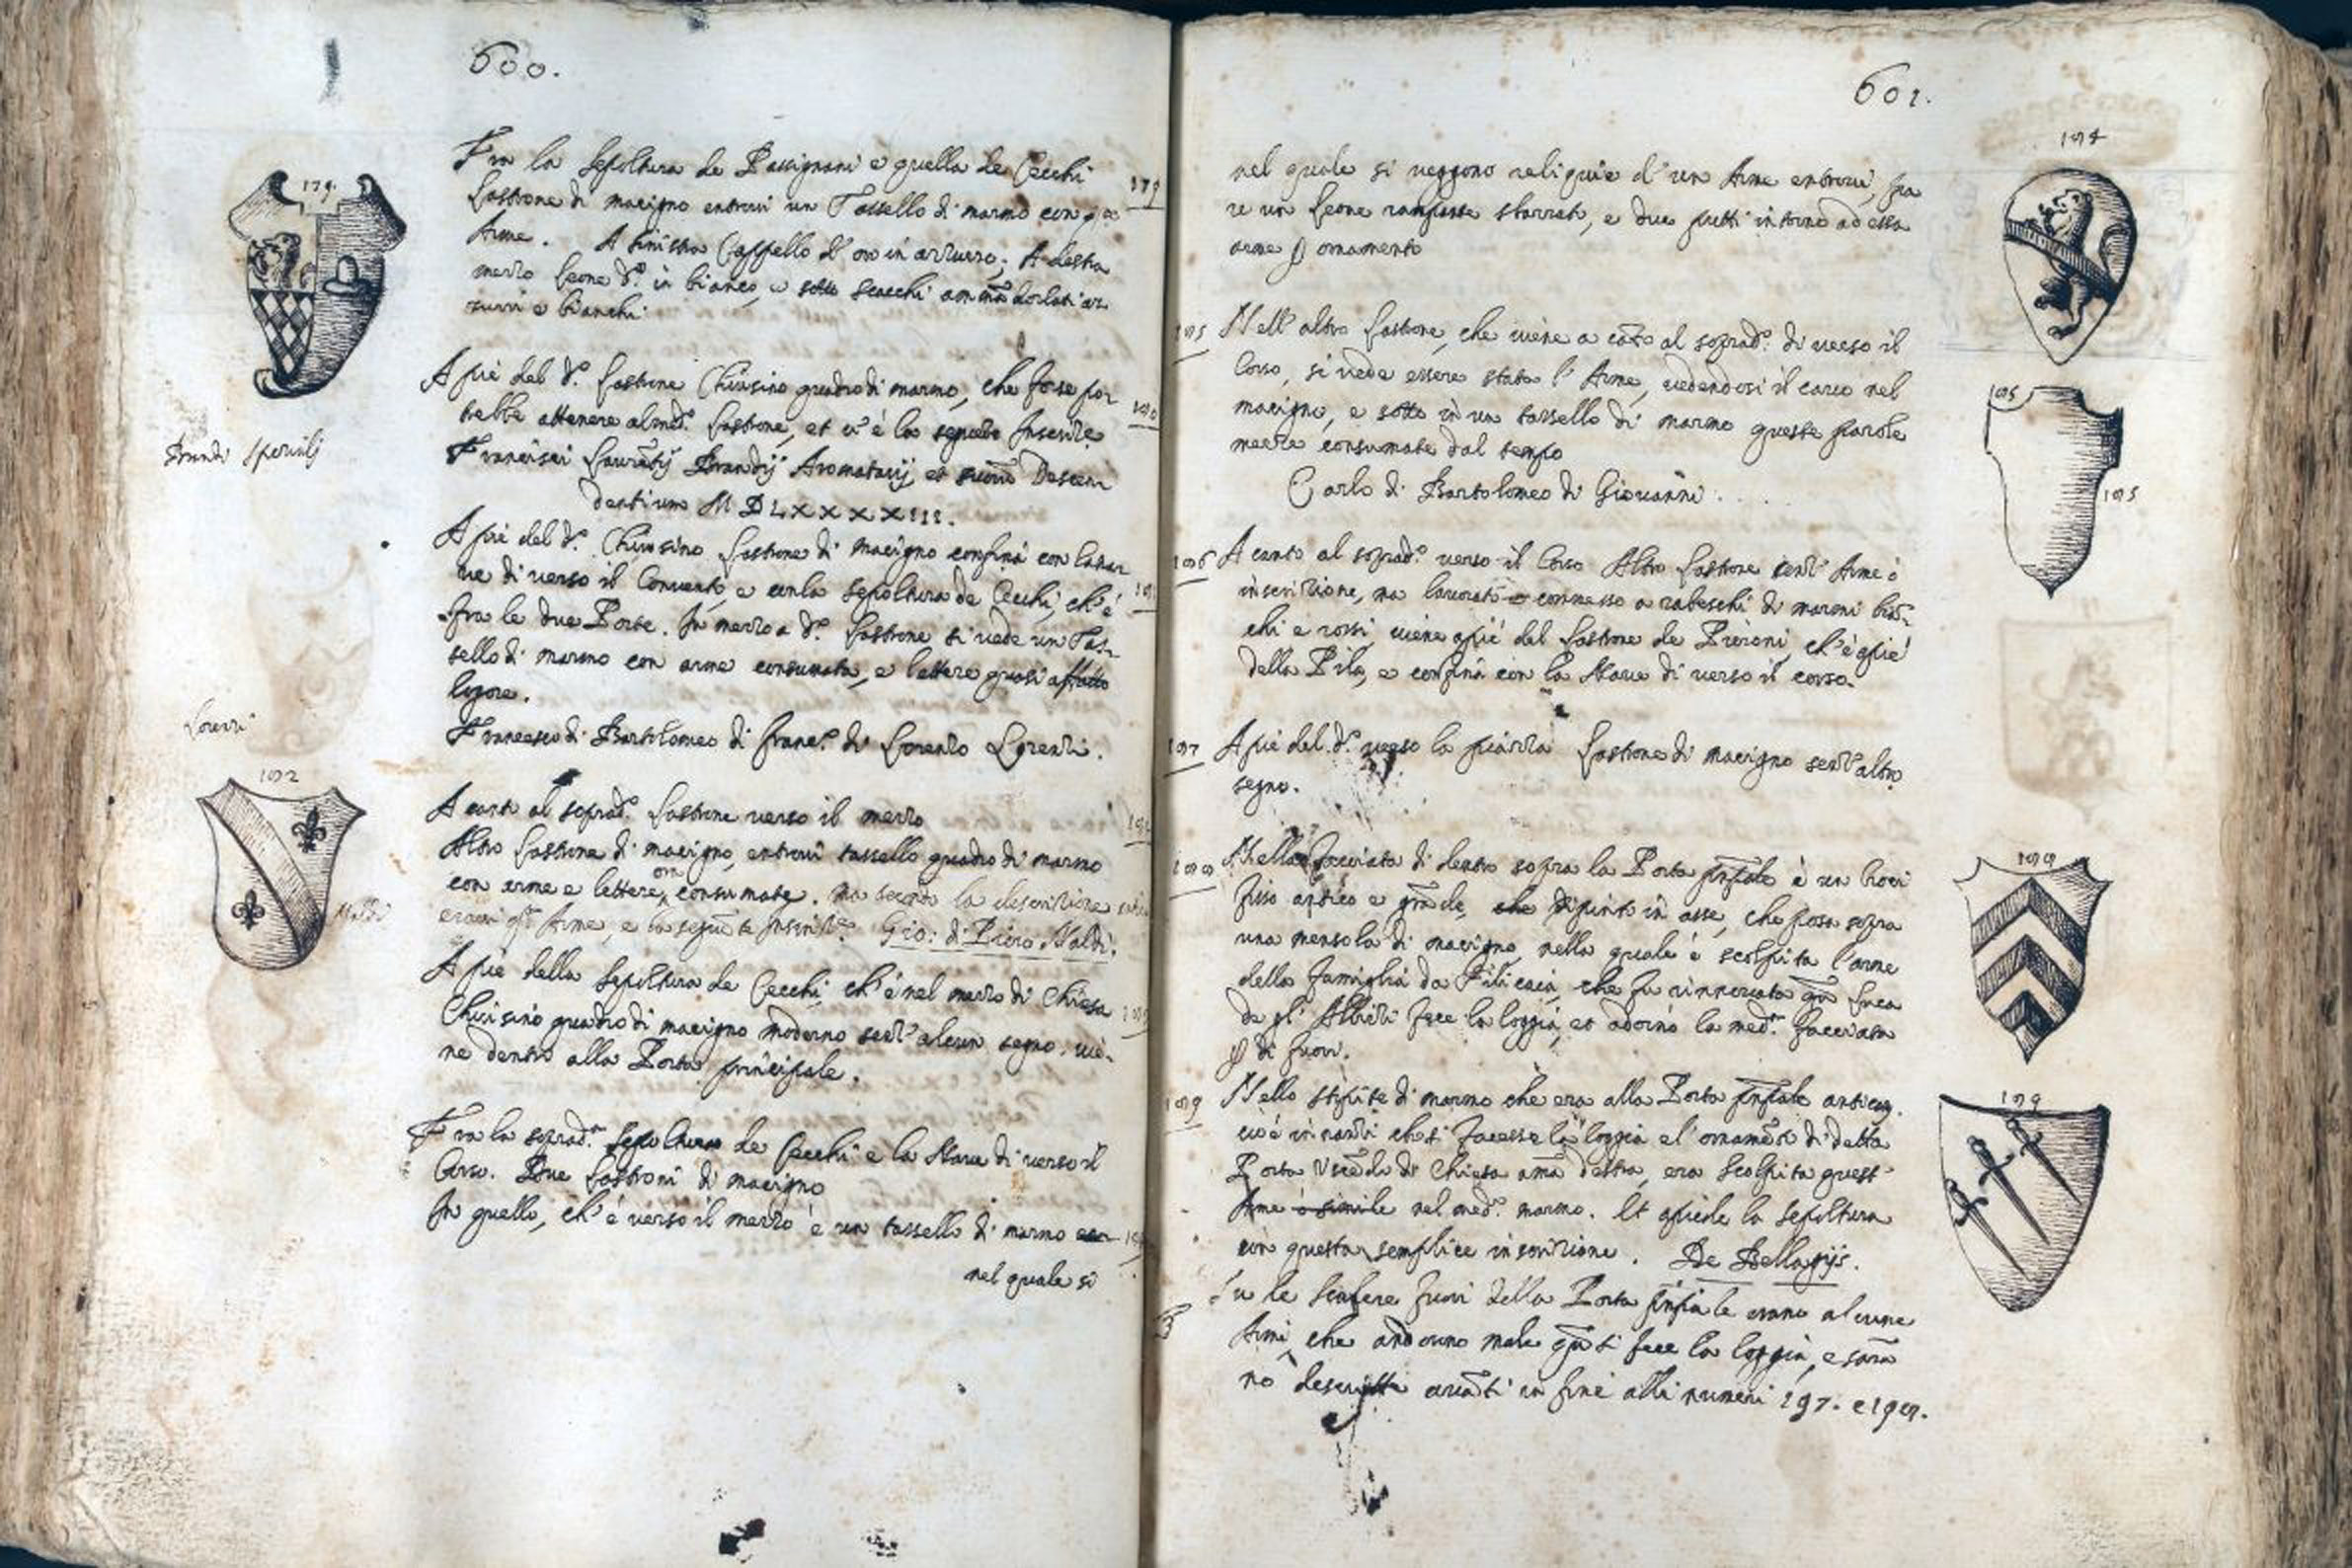 600.
179.
Fra la Sepoltura de Passignani e quella de Cecchi
179
Lastrone di macigno entrovi un Tassello di marmo con
Arme. A sinistra Cappello d'oro in azzurro; A destra
mezzo Leone d.º in bianco, e sotto scacchi az
zurri e bianchi.
A piè del d.º Lastrone Chiusino quadro di marmo, che forse por
180
rebbe attenere al med.º Lastrone, et v'è la seguete Inscrizᵉ
Brandi speziali
Francisci Lauretij Brandij Aromatarij, et suorũ Descen
dentium M D L X X X X I I I.
A piè del d.º Chiusino Lastrone di macigno confina con la
ve di verso il Convento, e con la sepoltura de Cecchi, ch'è
181
fra le due Porte. In mezzo a d.º Lastrone si vede un Tas-
sello di marmo con arme consumata, e lettere quasi affatto
logore.
Lorenzi
Francesco di Bartolomeo di Franc.º di Lorenzo Lorenzi.
182
A canto al soprad.º Lastrone verso il mezzo
182
Altro Lastrone di macigno, entrovi tassello quadro di marmo
con arme e lettere, consumate. ma secondo la descrizione
Naldi
eravi qᵗᵃ Arme, e la seguẽte Inscrizᵉ. Gio: di Piero Naldi.
A piè della Sepoltura de Cecchi, ch'è nel mezzo di Chiesa
Chiusino quadro di macigno moderno senz'alcun segno. vie-
ne dentro alla Porta principale.
Fra la soprad.ᵃ Sepoltura de Cecchi e la Nave di verso il
Corso. Due Lastroni di macigno
In quello, ch'è verso il mezzo è un tassello di marmo
nel quale si
601.
184
nel quale si veggono reliquie d'un Arme entrovi, pa
re un Leone rampante sbarrato, e due putti intorno ad essa
arme p ornamento
185
Nell'altro Lastrone, che viene a cãto al soprad.º di verso il
Corso, si vede essere stata l'Arme, vedendosi il cavo nel
macigno, e sotto in un tassello di marmo queste parole
mezze consumate dal tempo
Carlo di Bartolomeo di Giovanni.
185
185
186
A canto al soprad.º verso il Corso Altro Lastrone senz'Arme ò
inscrizione, ma lavorato e commesso a rabeschi di marmi biã-
chi e rossi, viene a piè del Lastrone de Pieroni, ch'è a piè
della Pila, e confina con la Nave di verso il corso.
187
A piè del d.º verso la piazza Lastrone di macigno senz'altro
segno.
188
188
Nella facciata di dentro sopra la Porta prĩpale è un Croci
fisso antico e grãde, che dipinto in asse, che posa sopra
una mensola di macigno, nella quale è scolpita l'arme
della famiglia da Filicaia, che fu rinnovata qñ Luca
de gl'Albizi fece la loggia, et adornò la med.ᵃ facciata
p di fuori.
189
189
Nello stipite di marmo che era alla Porta prĩpale antica,
cioè innanzi che si facesse la loggia e l'ornamẽto di detta
Porta Uscẽdo di Chiesa a mã destra, era scolpita quest'
Arme ò simile nel med.º marmo. Et a piede la sepoltura
con questa semplice inscrizione. De Bellagijs.
Su le scalere fuori della Porta prĩpale erano alcune
Armi, che andorno male qñ si fece la loggia, e sarã
nõ descritte avãti in fine alli numeri 197. e 198.